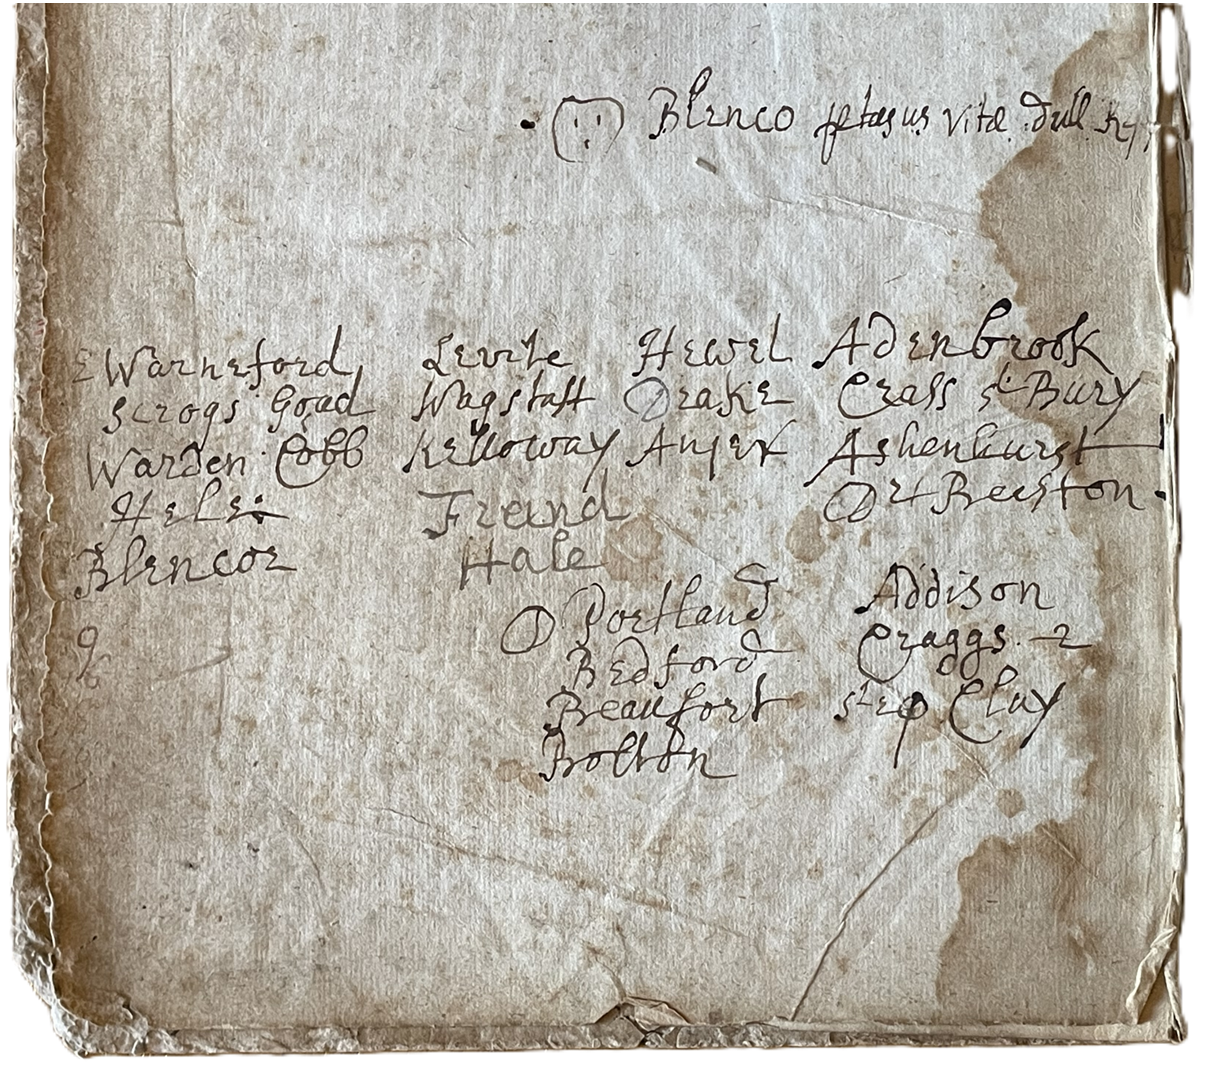 Blenco vitæ dull
Warneford Levite Hewel Adenbrook
Scrogs Goad Wagstaff Drake Crass st Bury
Warden Cobb Kelloway Anjer Ashenhurst
Hele Freind Dr Beeston
Blencoe Hale
Portland Addison
Bedford Craggs 2
Beaufort step Clay
Bolton